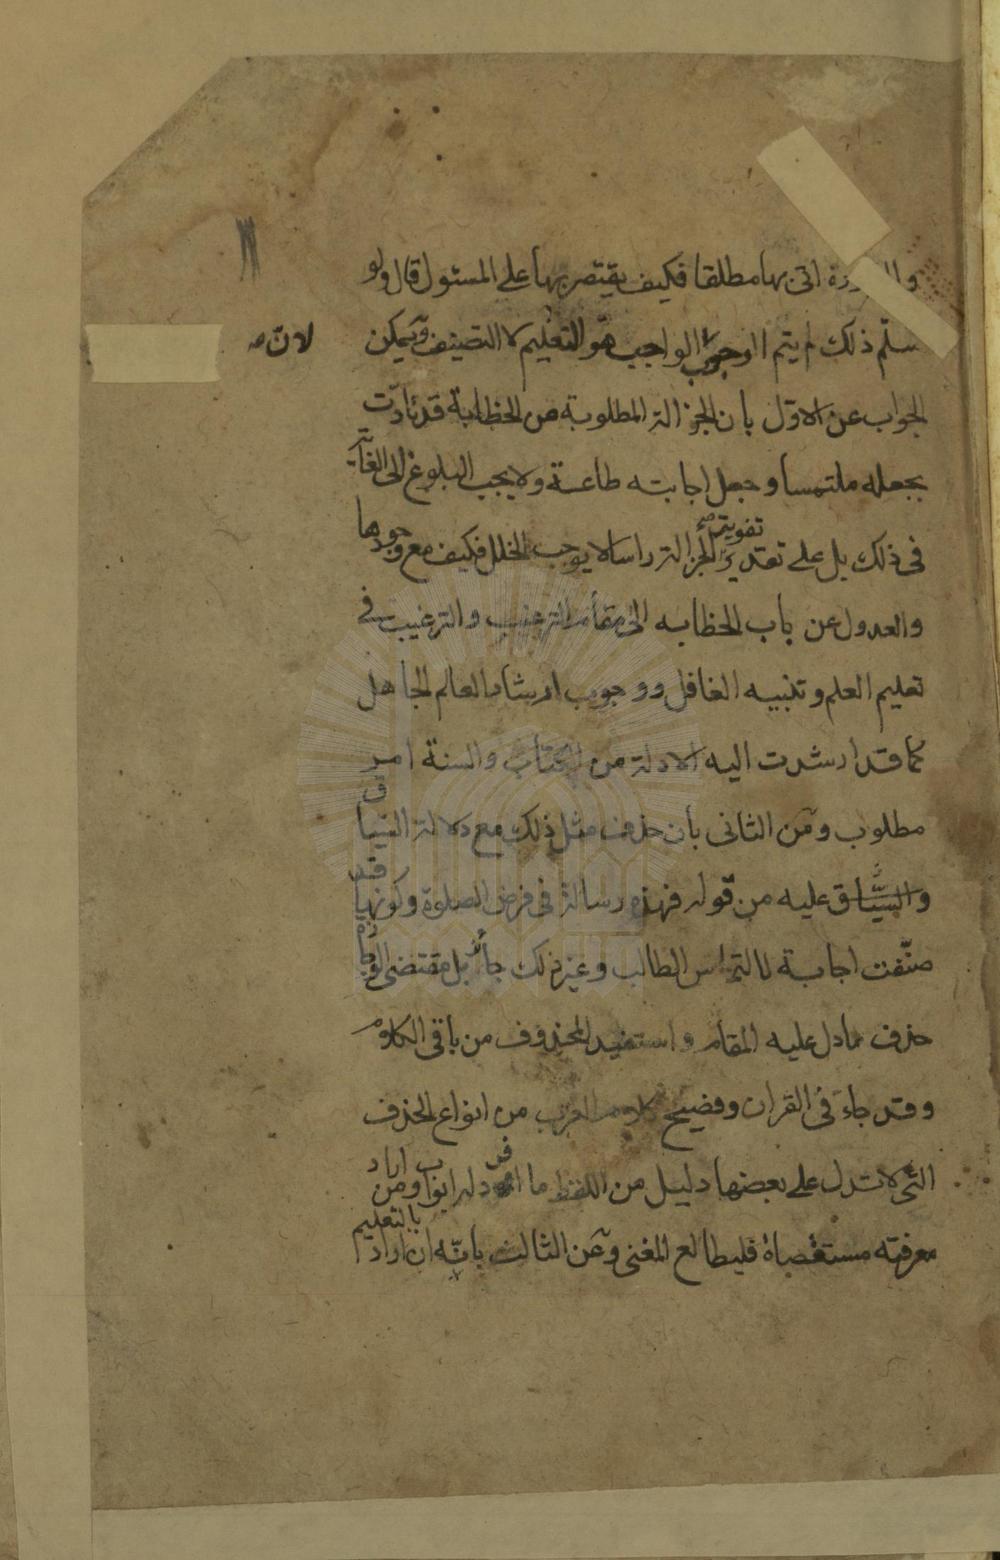 اتى بها مطلقا فكيف يقتصر بها على المسئول قال ولو
سلّم ذلك لم يتم الوجوب الواجب هو التعليم لا التصنيف ويمكن
لانّ صح
الجواب عن الاوّل بان الجزالة المطلوبة من الخطابة قد تادّت
بجعله ملتمسا وجعل اجابته طاعة ولا يجب البلوغ الى الغاية
فى ذلك بل على تقدير تفويت الجزالة راسا لا يوجب الخلل فكيف مع وجودها
والعدول عن باب الخطابه الى مقام الترغيب والترغيب فى
تعليم العلم وتنبيه الغافل ووجوب ارشاد العالم الجاهل
كما قد ارشدت اليه الادلة من الكتاب والسنة امر
مطلوب وعن الثانى بأن حذف مثل ذلك مع دلالة السياق
والسّياق عليه من قوله فهذه رسالة فى فرض الصلوة وكونها قد
صنّفت اجابة لالتماس الطالب وغير ذلك جائز بل مقتضى المقام
حذف ما دل عليه المقام واستفيد المحذوف من باقى الكلام
وقد جاء فى القران وفصيح كلام العرب من انواع الحذف
التى لا تدل على بعضها دليل من اللفظ ما افرد له ابواب ومن اراد
معرفته مستقصاة فليطالع المغنى وعن الثالث بانّه ان اراد بالتعليم